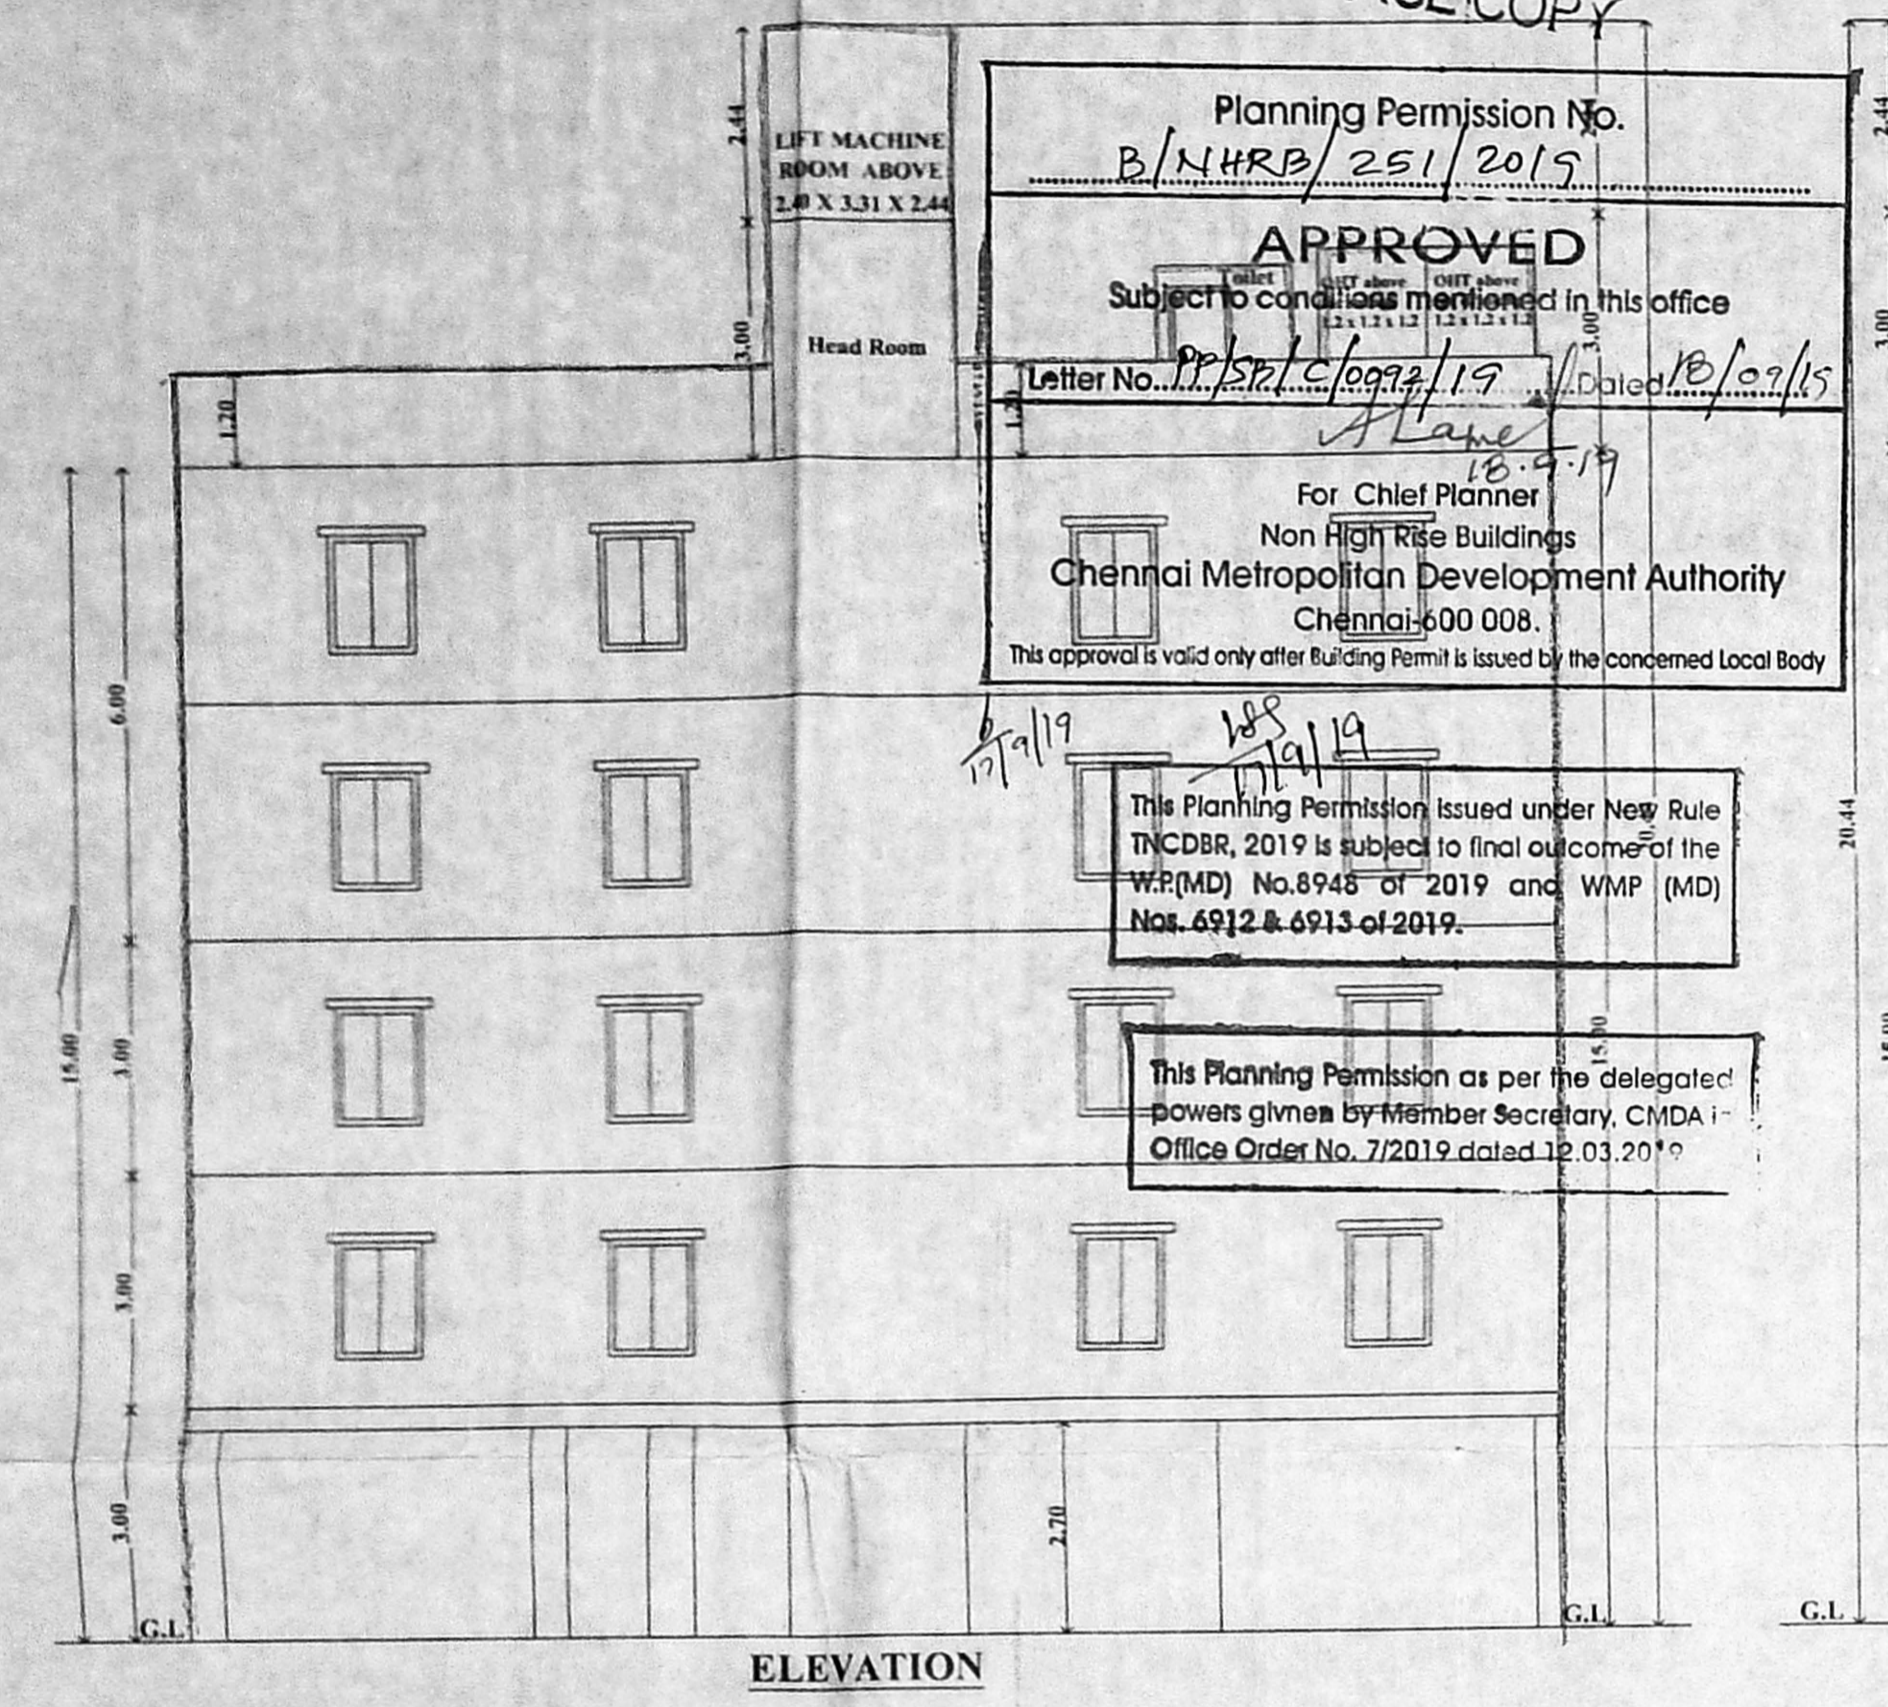 COPY
2.44
LIFT MACHINE
ROOM ABOVE
2.40 X 3.31 X 2.44
3.00
Head Room
1.20
1.20
Planning Permission No.
B/NHRB/251/2019
APPROVED
Subject to conditions mentioned in this office
Letter No. PP/SB/C/0992/19 Dated 18/09/19
18.9.19
For Chief Planner
Non High Rise Buildings
Chennai Metropolitan Development Authority
Chennai-600 008.
This approval is valid only after Building Permit is issued by the concerned Local Body
Toilet
OHT above
1.2 x 1.2 x 1.2
OHT above
1.2 x 1.2 x 1.2
3.00
2.44
3.00
17/9/19
17/9/19
This Planning Permission issued under New Rule
TNCDBR, 2019 is subject to final outcome of the
W.P.(MD) No.8948 of 2019 and WMP (MD)
Nos. 6912 & 6913 of 2019.
This Planning Permission as per the delegated
powers givnen by Member Secretary, CMDA
Office Order No. 7/2019 dated 12.03.2019
6.00
15.00
3.00
3.00
3.00
2.70
15.00
20.44
15.00
G.L
G.L
G.L
ELEVATION